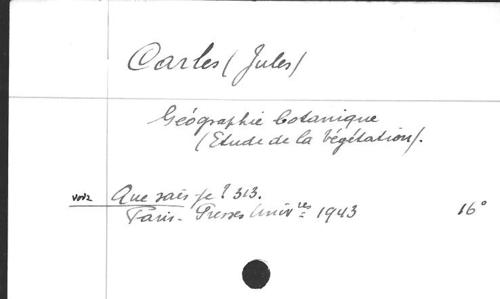 Carles (Jules)
Géographie botanique
(Etude de la végétation).
voir Que sais-je ? 313.
Paris - Presses Univ res 1943 16°